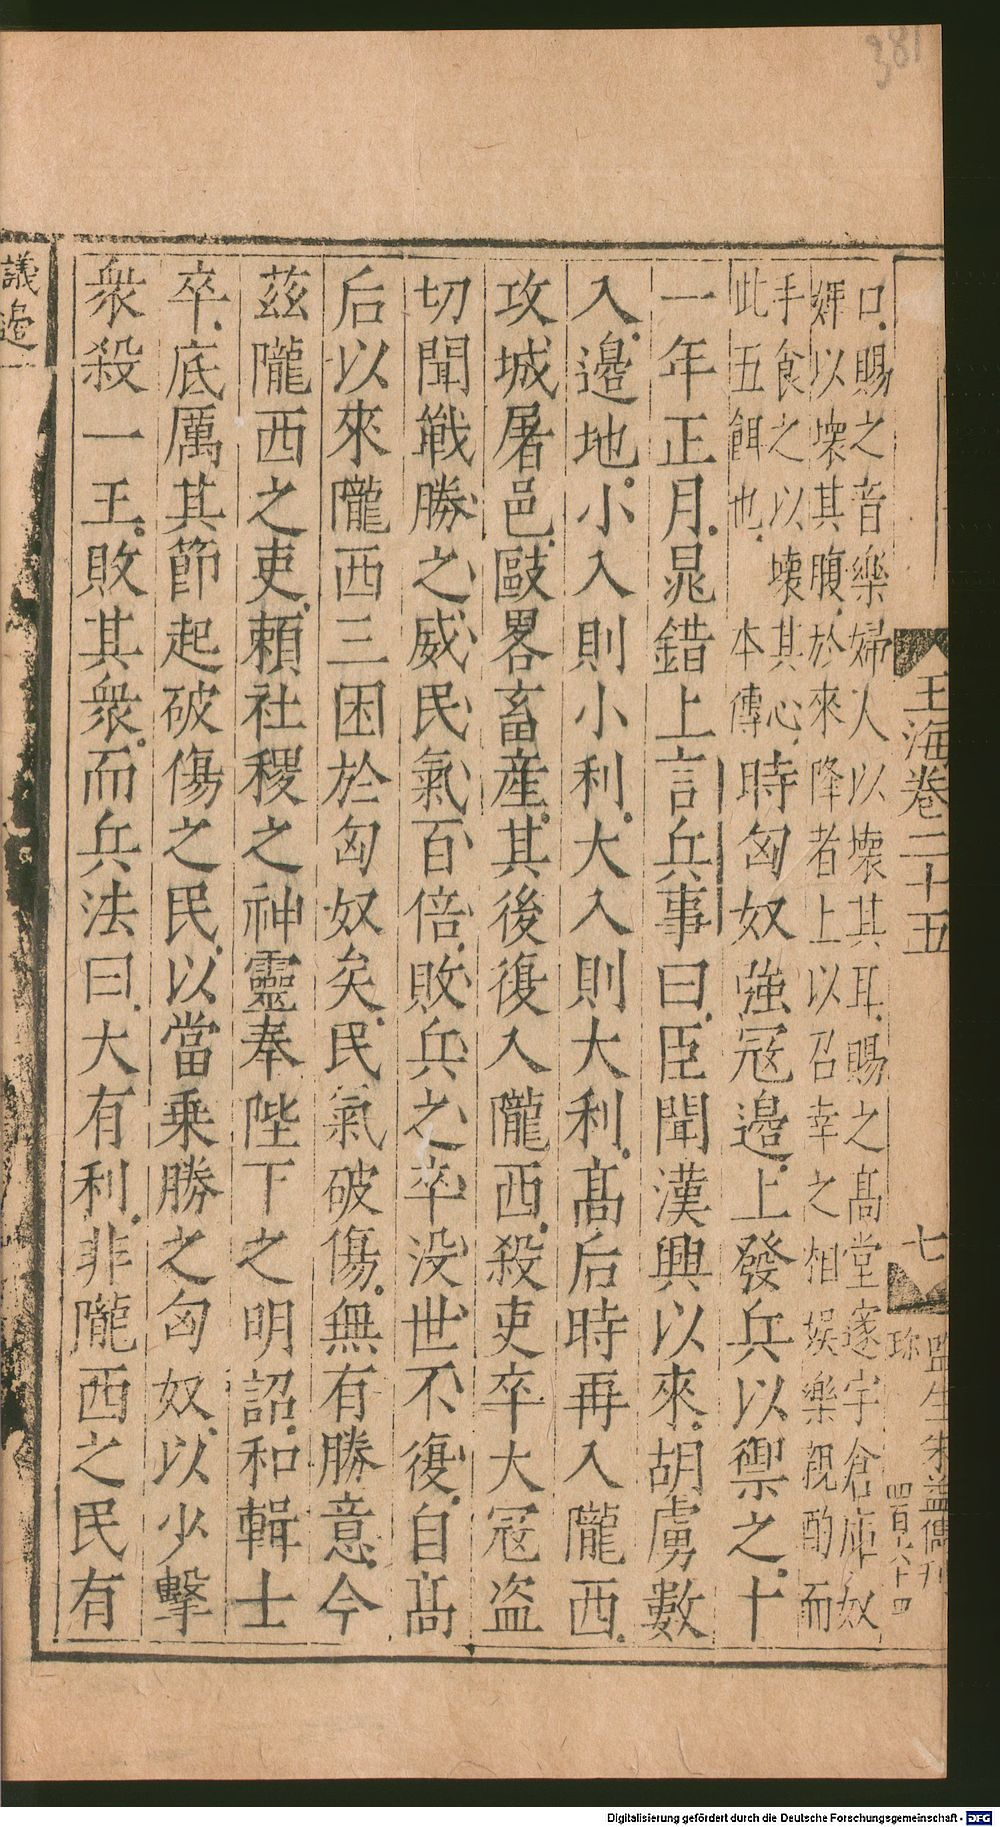 381
玉海卷二十五
七
監生朱益儁刋
珎
四百六十四
口賜之音樂婦人以壞其耳賜之髙堂邃宇倉庫奴
婢以壞其腹於來降者上以召幸之相娛樂親酌而
手食之以壞其心
此五餌也 本傳
時匈奴強冦邉上發兵以禦之十
一年正月晁錯上言兵事曰臣聞漢興以來胡虜數
入邉地小入則小利大入則大利髙后時再入隴西
攻城屠邑敺畧畜産其後復入隴西殺吏卒大冦盗
切聞戰勝之威民氣百倍敗兵之卒没世不復自髙
后以來隴西三困於匈奴矣民氣破傷無有勝意今
茲隴西之吏頼社稷之神靈奉陛下之明詔和輯士
卒底厲其節起破傷之民以當乗勝之匈奴以少擊
衆殺一王敗其衆而兵法曰大有利非隴西之民有
議邉
Digitalisierung gefördert durch die Deutsche Forschungsgemeinschaft - DFG